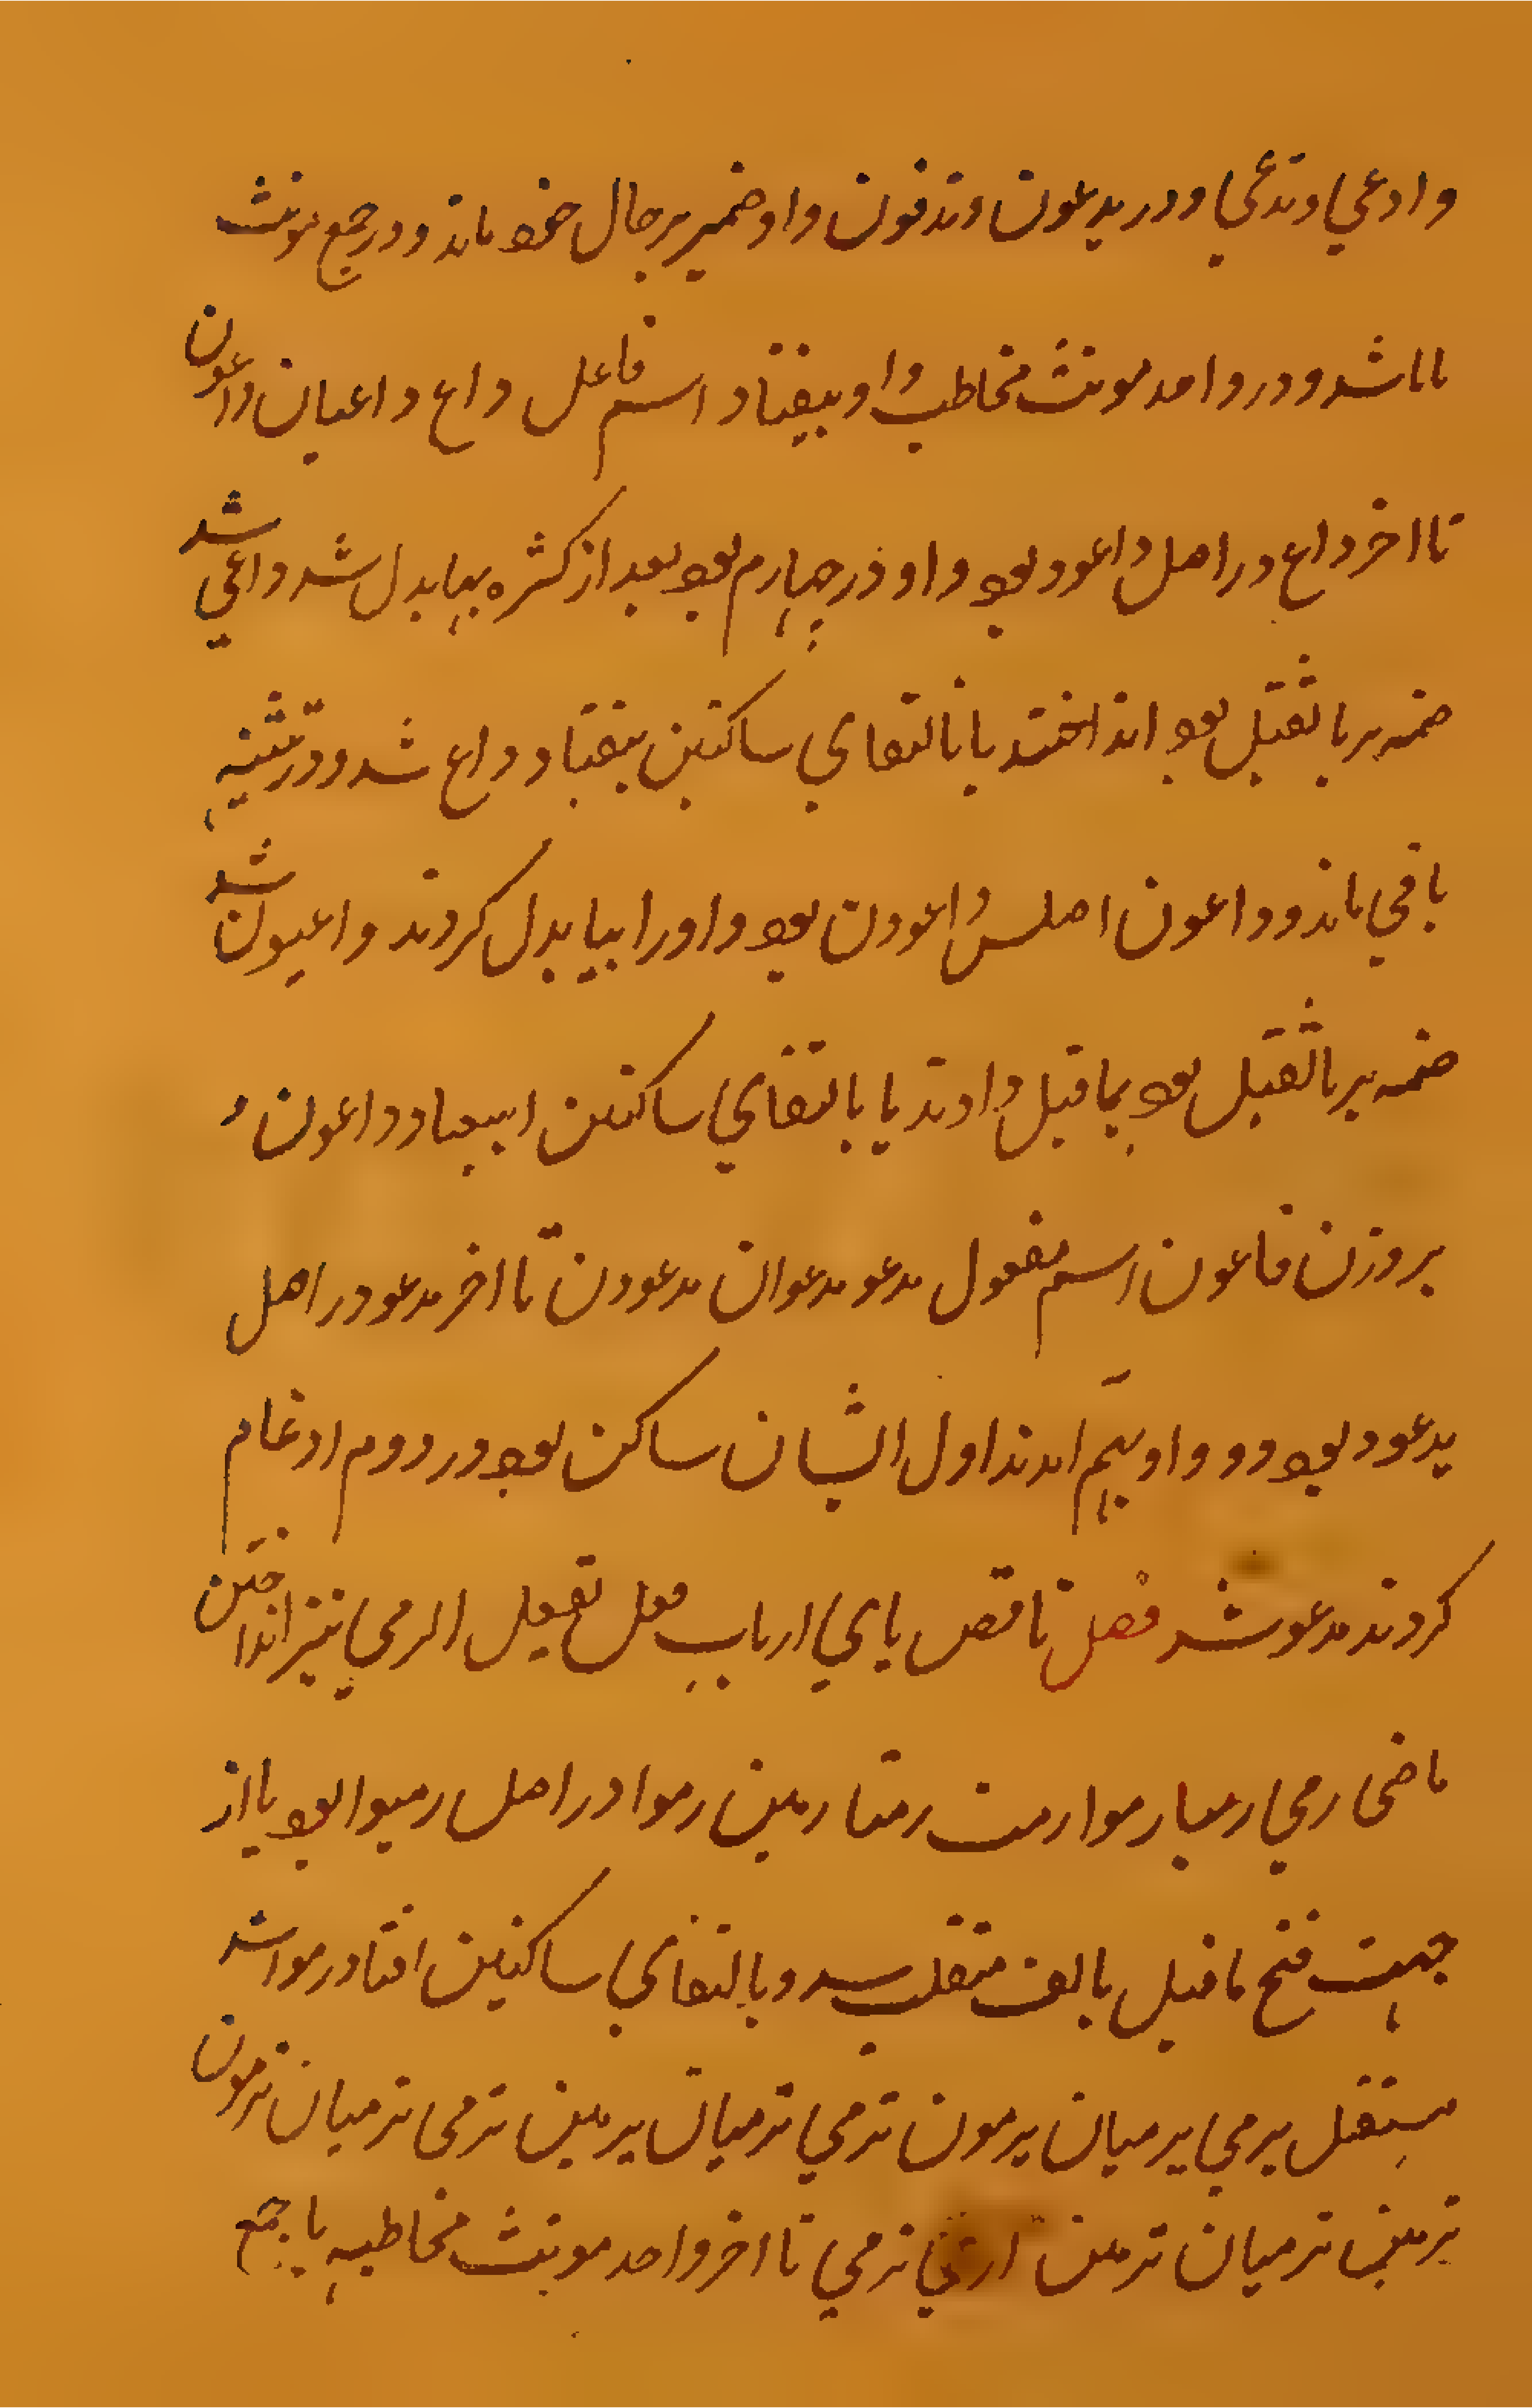 وادعي وتدعي ودر يدعون وتدعون واو ضمير برحال خود ماند ودر جمع مونث
تا باشد ودر واحد مونث مخاطب واو بيفتاد اسم فاعل داع داعيان داعون
تا اخر داع در اصل داعو بود واو در چهارم بود بعد از كسره بيا بدل شد داعي شد
ضمه بر يا ثقيل بود انداختند يا بالتقاي ساكنين بيفتاد داع شد ودر تثنيه
باقي ماند وداعون اصلش داعوون بود واو را بيا بدل كردند داعيون شد
ضمه بر يا ثقيل بود بماقبل دادند يا بالتقاي ساكنين بيفتاد داعون
بر وزن فاعون اسم مفعول مدعو مدعوان مدعوون تا اخر مدعو در اصل
مدعوو بود دو واو بهم امدند اول ايشان ساكن بود در دوم ادغام
كردند مدعو شد فصل ناقص ياي از باب فعل يفعل الرمي تير انداختن
ماضي رمي رميا رموا رمت رمتا رمين رموا در اصل رميوا بود يا از
جهت فتح ماقبل بالف منقلب شد وبالتقاي ساكنين افتاد رموا شد
مستقبل يرمي يرميان يرمون ترمي ترميان يرمين ترمي ترميان ترمون
ترمين ترميان ترمين ارمي نرمي تا اخر واحد مونث مخاطبه با جمع